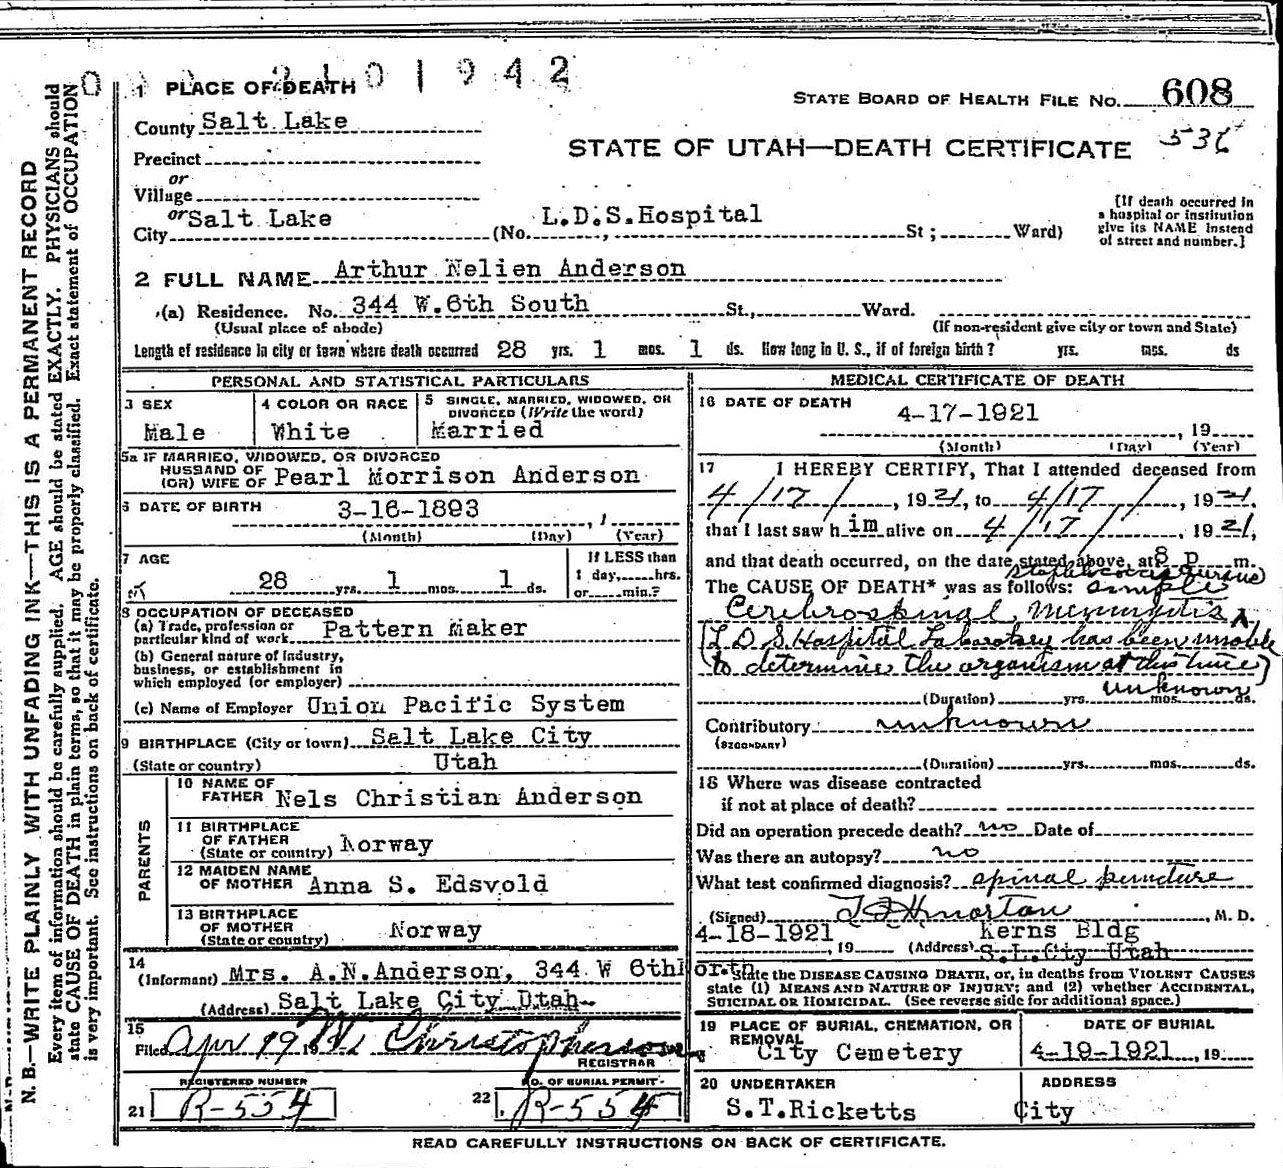 1 PLACE OF DEATH
0 1942
STATE BOARD OF HEALTH FILE NO. 608
County Salt Lake
536
STATE OF UTAH—DEATH CERTIFICATE
Precinct
or
Village
or
City Salt Lake (No. L.D.S.Hospital St; Ward)
[If death occurred in
a hospital or institution
give its NAME instead
of street and number.]
2 FULL NAME Arthur Nelien Anderson
(a) Residence. No. 344 W.6th South St., Ward.
(Usual place of abode) (If non-resident give city or town and State)
Length of residence in city or town where death occurred 28 yrs. 1 mos. 1 ds. How long in U. S., if of foreign birth? yrs. mos. ds
PERSONAL AND STATISTICAL PARTICULARS
3 SEX
Male
4 COLOR OR RACE
White
5 SINGLE, MARRIED, WIDOWED, OR
DIVORCED (Write the word)
Married
5a IF MARRIED, WIDOWED, OR DIVORCED
HUSBAND OF
(OR) WIFE OF Pearl Morrison Anderson
6 DATE OF BIRTH 3-16-1893
(Month) (Day) (Year)
7 AGE
28 yrs. 1 mos. 1 ds.
If LESS than
1 day, hrs.
or min.?
8 OCCUPATION OF DECEASED
(a) Trade, profession or
particular kind of work Pattern Maker
(b) General nature of industry,
business, or establishment in
which employed (or employer)
(c) Name of Employer Union Pacific System
9 BIRTHPLACE (City or town) Salt Lake City
(State or country) Utah
PARENTS
10 NAME OF
FATHER Nels Christian Anderson
11 BIRTHPLACE
OF FATHER
(State or country) Norway
12 MAIDEN NAME
OF MOTHER Anna S. Edsvold
13 BIRTHPLACE
OF MOTHER
(State or country) Norway
14
(Informant) Mrs. A.N.Anderson, 344 W 6th North
(Address) Salt Lake City Utah
15
Filed Apr 19 19 Christopherson
REGISTRAR
REGISTERED NUMBER
21 R-554
NO. OF BURIAL PERMIT
22 R-554
MEDICAL CERTIFICATE OF DEATH
16 DATE OF DEATH 4-17-1921
, 19
(Month) (Day) (Year)
17 I HEREBY CERTIFY, That I attended deceased from
4/17/, 1921, to 4/17/, 1921,
that I last saw h im alive on 4/17/, 1921,
and that death occurred, on the date stated above, at 8 P. m.
The CAUSE OF DEATH* was as follows: simple
Cerebrospinal Meningitis
(L.D.S Hospital Laboratory has been unable
to determine the organism at this time)
unknown
(Duration) yrs. mos. ds.
Contributory unknown
(SECONDARY)
(Duration) yrs. mos. ds.
18 Where was disease contracted
if not at place of death?
Did an operation precede death? no Date of
Was there an autopsy? no
What test confirmed diagnosis? spinal puncture
(Signed) , M. D.
4-18-1921, 19 (Address) Kerns Bldg
S.L.City Utah
*State the DISEASE CAUSING DEATH, or, in deaths from VIOLENT CAUSES
state (1) MEANS AND NATURE OF INJURY; and (2) whether ACCIDENTAL,
SUICIDAL OR HOMICIDAL. (See reverse side for additional space.)
19 PLACE OF BURIAL, CREMATION, OR
REMOVAL
City Cemetery
DATE OF BURIAL
4-19-1921, 19
20 UNDERTAKER
S.T.Ricketts
ADDRESS
City
READ CAREFULLY INSTRUCTIONS ON BACK OF CERTIFICATE.
N. B.—WRITE PLAINLY WITH UNFADING INK—THIS IS A PERMANENT RECORD
Every item of information should be carefully supplied. AGE should be stated EXACTLY. PHYSICIANS should
state CAUSE OF DEATH in plain terms, so that it may be properly classified. Exact statement of OCCUPATION
is very important. See instructions on back of certificate.